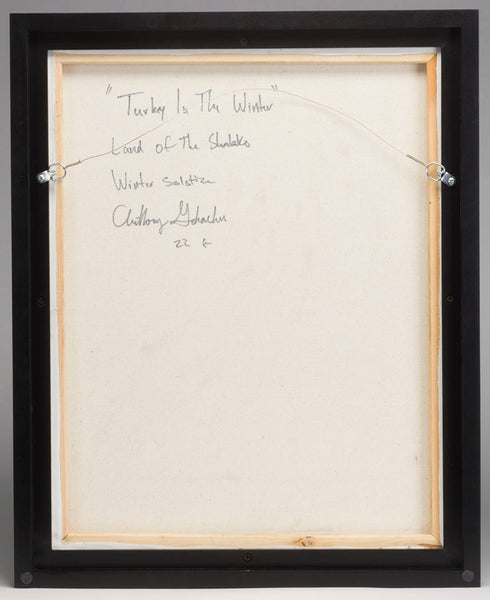 "Turkey In The Winter"
Land of The Shalako
Winter Solstice
Anthony
22